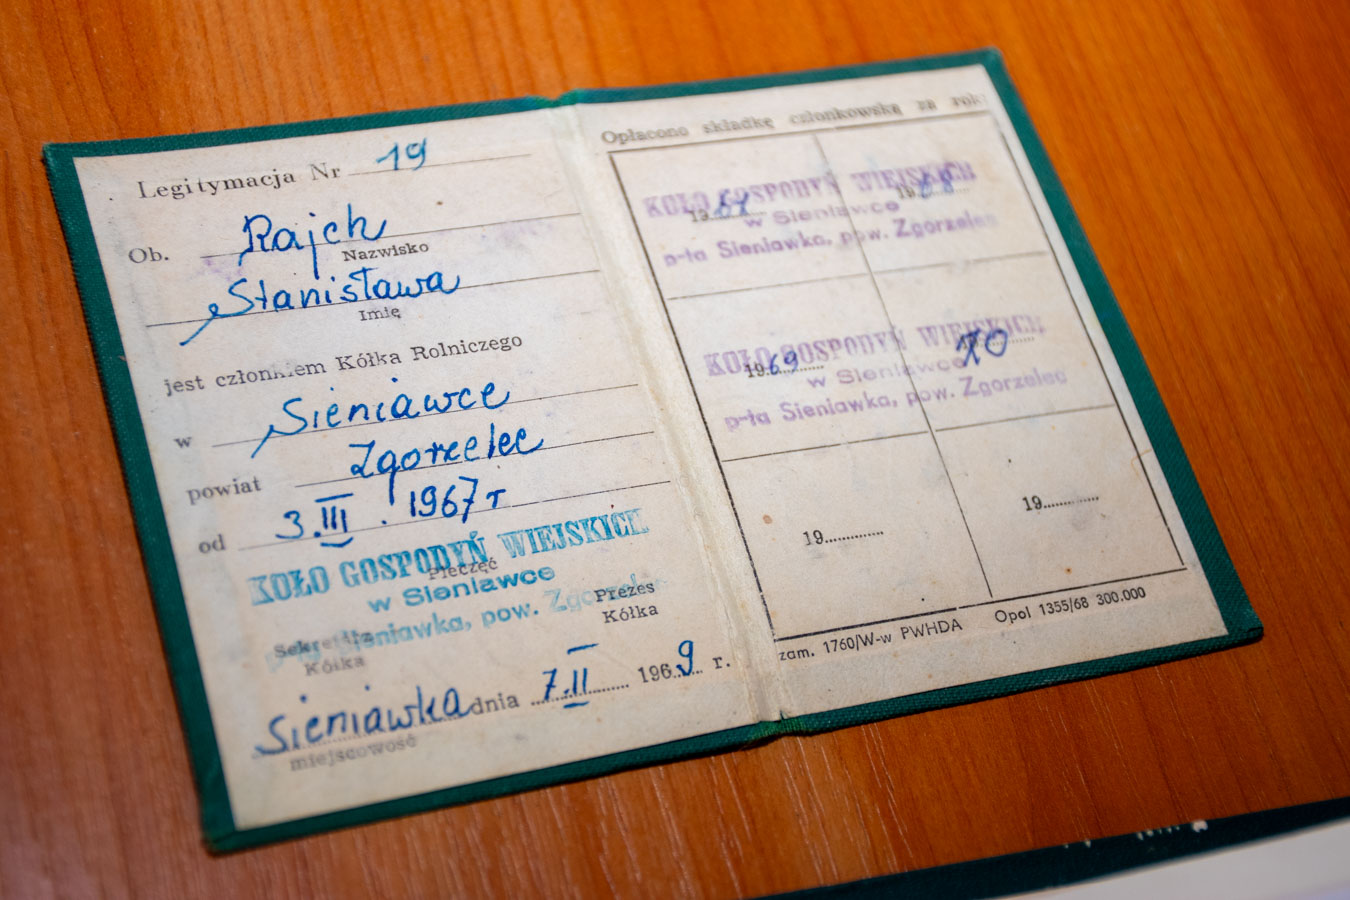 Legitymacja Nr 19
Ob. Rajch
Nazwisko
Stanisława
Imię
jest członkiem Kółka Rolniczego
w Sieniawce
powiat Zgorzelec
od 3.III. 1967 r
KOŁO GOSPODYŃ WIEJSKICH
Pieczęć
w Sieniawce
p-ta Sieniawka, pow. Zgorzelec
Prezes
Kółka
Kółka
Sieniawka dnia 7.II 1969 r.
miejscowość
Opłacono składkę członkowską za rok:
KOŁO GOSPODYŃ WIEJSKICH
19 68
w Sieniawce
p-ta Sieniawka, pow. Zgorzelec
KOŁO GOSPODYŃ WIEJSKICH
1969 70
w Sieniawce
p-ta Sieniawka, pow. Zgorzelec
19.............. 19..............
zam. 1760/W-w PWHDA Opol 1355/68 300.000